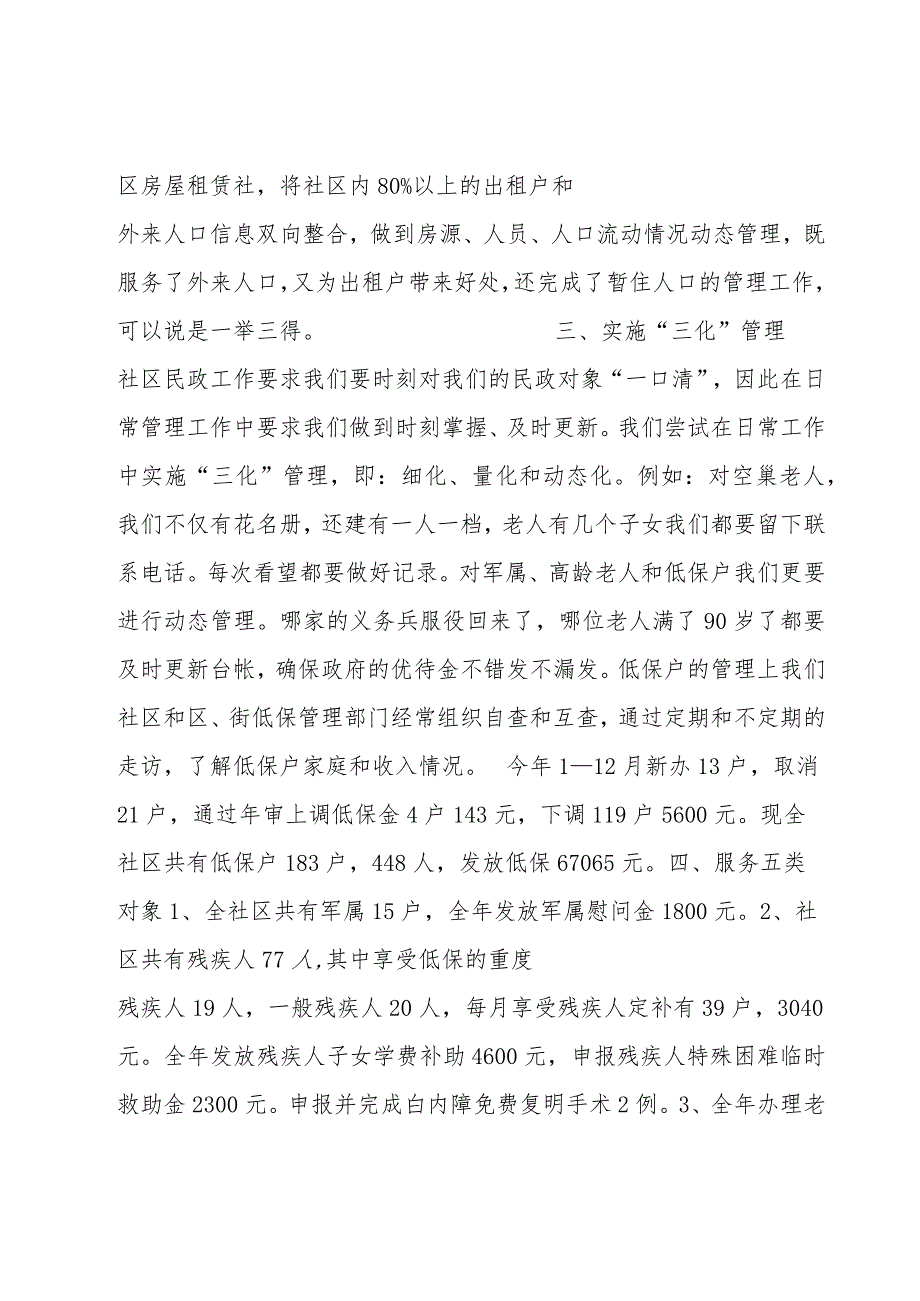 区房屋租赁社，将社区内 80%以上的出租户和
外来人口信息双向整合，做到房源、人员、人口流动情况动态管理，既
服务了外来人口，又为出租户带来好处，还完成了暂住人口的管理工作，
可以说是一举三得。 三、实施“三化”管理
社区民政工作要求我们要时刻对我们的民政对象“一口清”，因此在日
常管理工作中要求我们做到时刻掌握、及时更新。我们尝试在日常工作
中实施“三化”管理，即：细化、量化和动态化。例如：对空巢老人，
我们不仅有花名册，还建有一人一档，老人有几个子女我们都要留下联
系电话。每次看望都要做好记录。对军属、高龄老人和低保户我们更要
进行动态管理。哪家的义务兵服役回来了，哪位老人满了 90 岁了都要
及时更新台帐，确保政府的优待金不错发不漏发。低保户的管理上我们
社区和区、街低保管理部门经常组织自查和互查，通过定期和不定期的
走访，了解低保户家庭和收入情况。 今年 1—12 月新办 13 户，取消
21 户，通过年审上调低保金 4 户 143 元，下调 119 户 5600 元。现全
社区共有低保户 183 户，448 人，发放低保 67065 元。四、服务五类
对象 1、全社区共有军属 15 户，全年发放军属慰问金 1800 元。2、社
区共有残疾人 77 人,其中享受低保的重度
残疾人 19 人，一般残疾人 20 人，每月享受残疾人定补有 39 户，3040
元。全年发放残疾人子女学费补助 4600 元，申报残疾人特殊困难临时
救助金 2300 元。申报并完成白内障免费复明手术 2 例。3、全年办理老